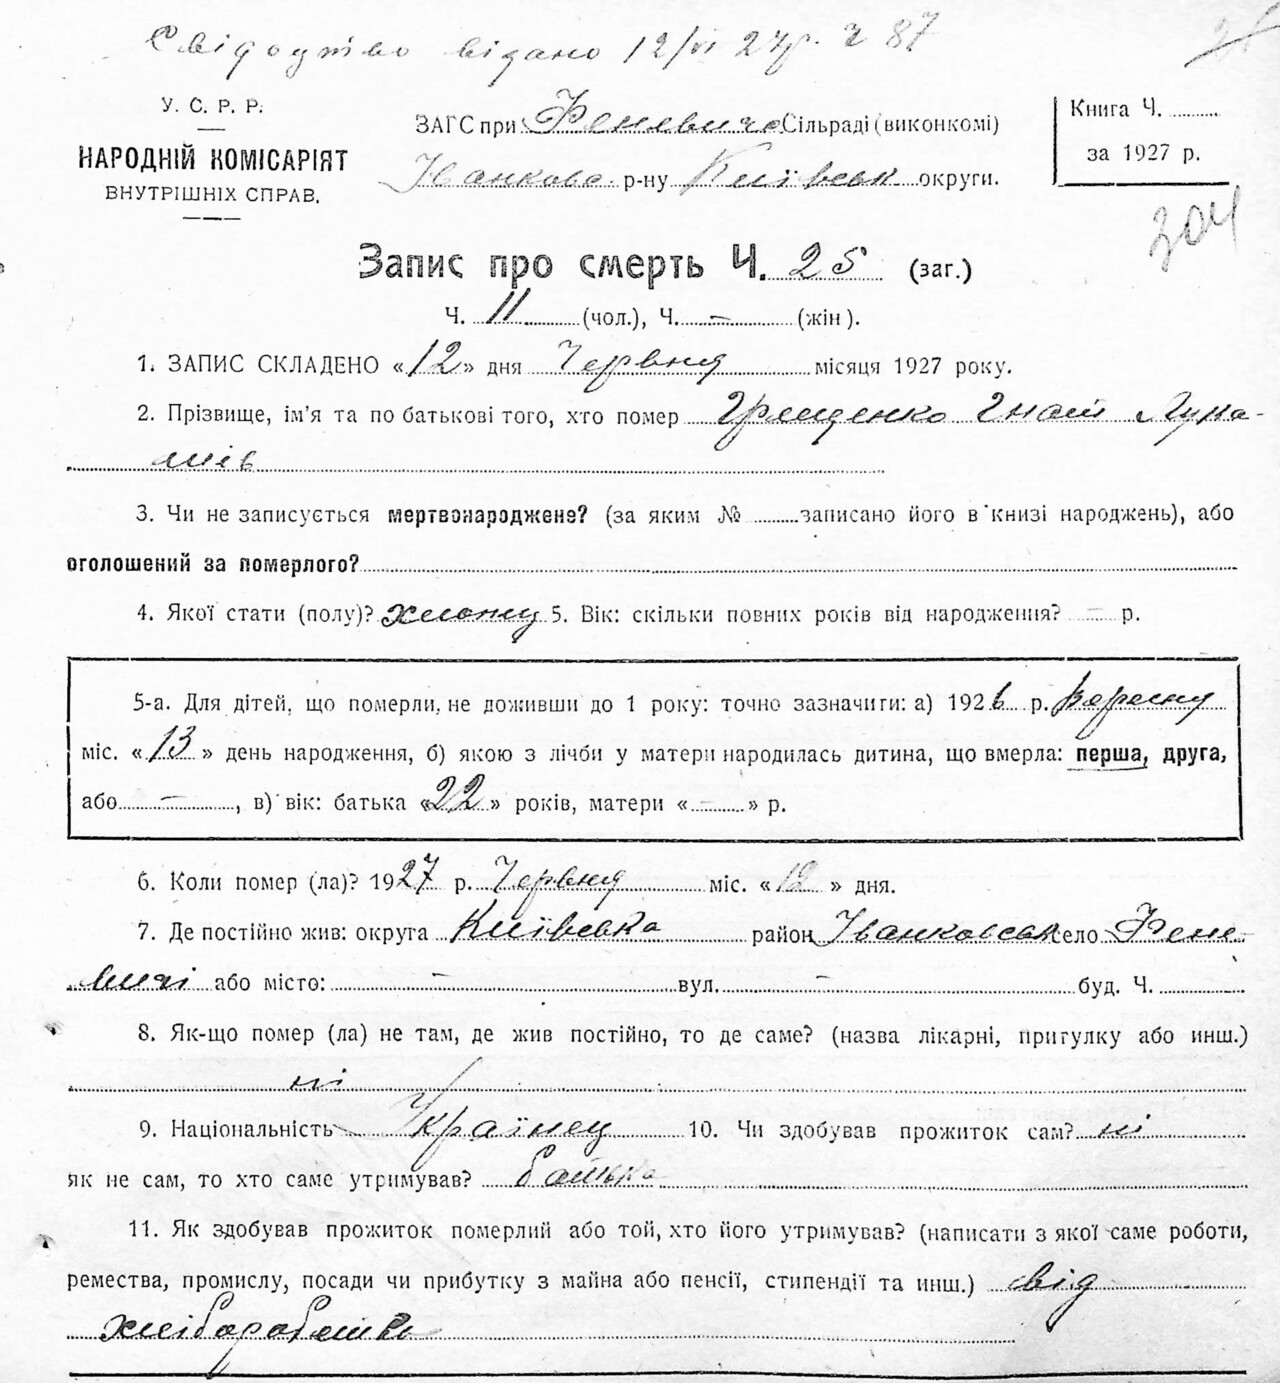 Свідоцтво видано 12/VI 27р. Ч 87
У. С. Р. Р.
НАРОДНІЙ КОМІСАРІЯТ
ВНУТРІШНІХ СПРАВ.
ЗАГС при Феневича Сільраді (виконкомі)
Іванково р-ну Київськ округи.
Книга Ч.
за 1927 р.
304
Запис про смерть Ч. 25 (заг.)
Ч. 11 (чол.), Ч. — (жін).
1. ЗАПИС СКЛАДЕНО «12» дня Червня місяця 1927 року.
2. Прізвище, ім'я та по батькові того, хто помер Грищенко Гнат Лука-
шів
3. Чи не записується мертвонароджене? (за яким № записано його в книзі народжень), або
оголошений за померлого?
4. Якої стати (полу)? хлопец 5. Вік: скільки повних років від народження? — р.
5-а. Для дітей, що померли, не доживши до 1 року: точно зазначити: а) 1926 р. Вересну
міс. «13» день народження, б) якою з лічби у матери народилась дитина, що вмерла: перша, друга,
або — , в) вік: батька «22» років, матери «—» р.
6. Коли помер (ла)? 1927 р. Червня міс. «12» дня.
7. Де постійно жив: округа Київська район Іванковськ село Фене-
вичі або місто: — вул. — буд. Ч.
8. Як-що помер (ла) не там, де жив постійно, то де саме? (назва лікарні, пригулку або инш.)
ні
9. Національність Українец 10. Чи здобував прожиток сам? ні
як не сам, то хто саме утримував? батько
11. Як здобував прожиток померлий або той, хто його утримував? (написати з якої саме роботи,
ремества, промислу, посади чи прибутку з майна або пенсії, стипендії та инш.) від
хліборобства